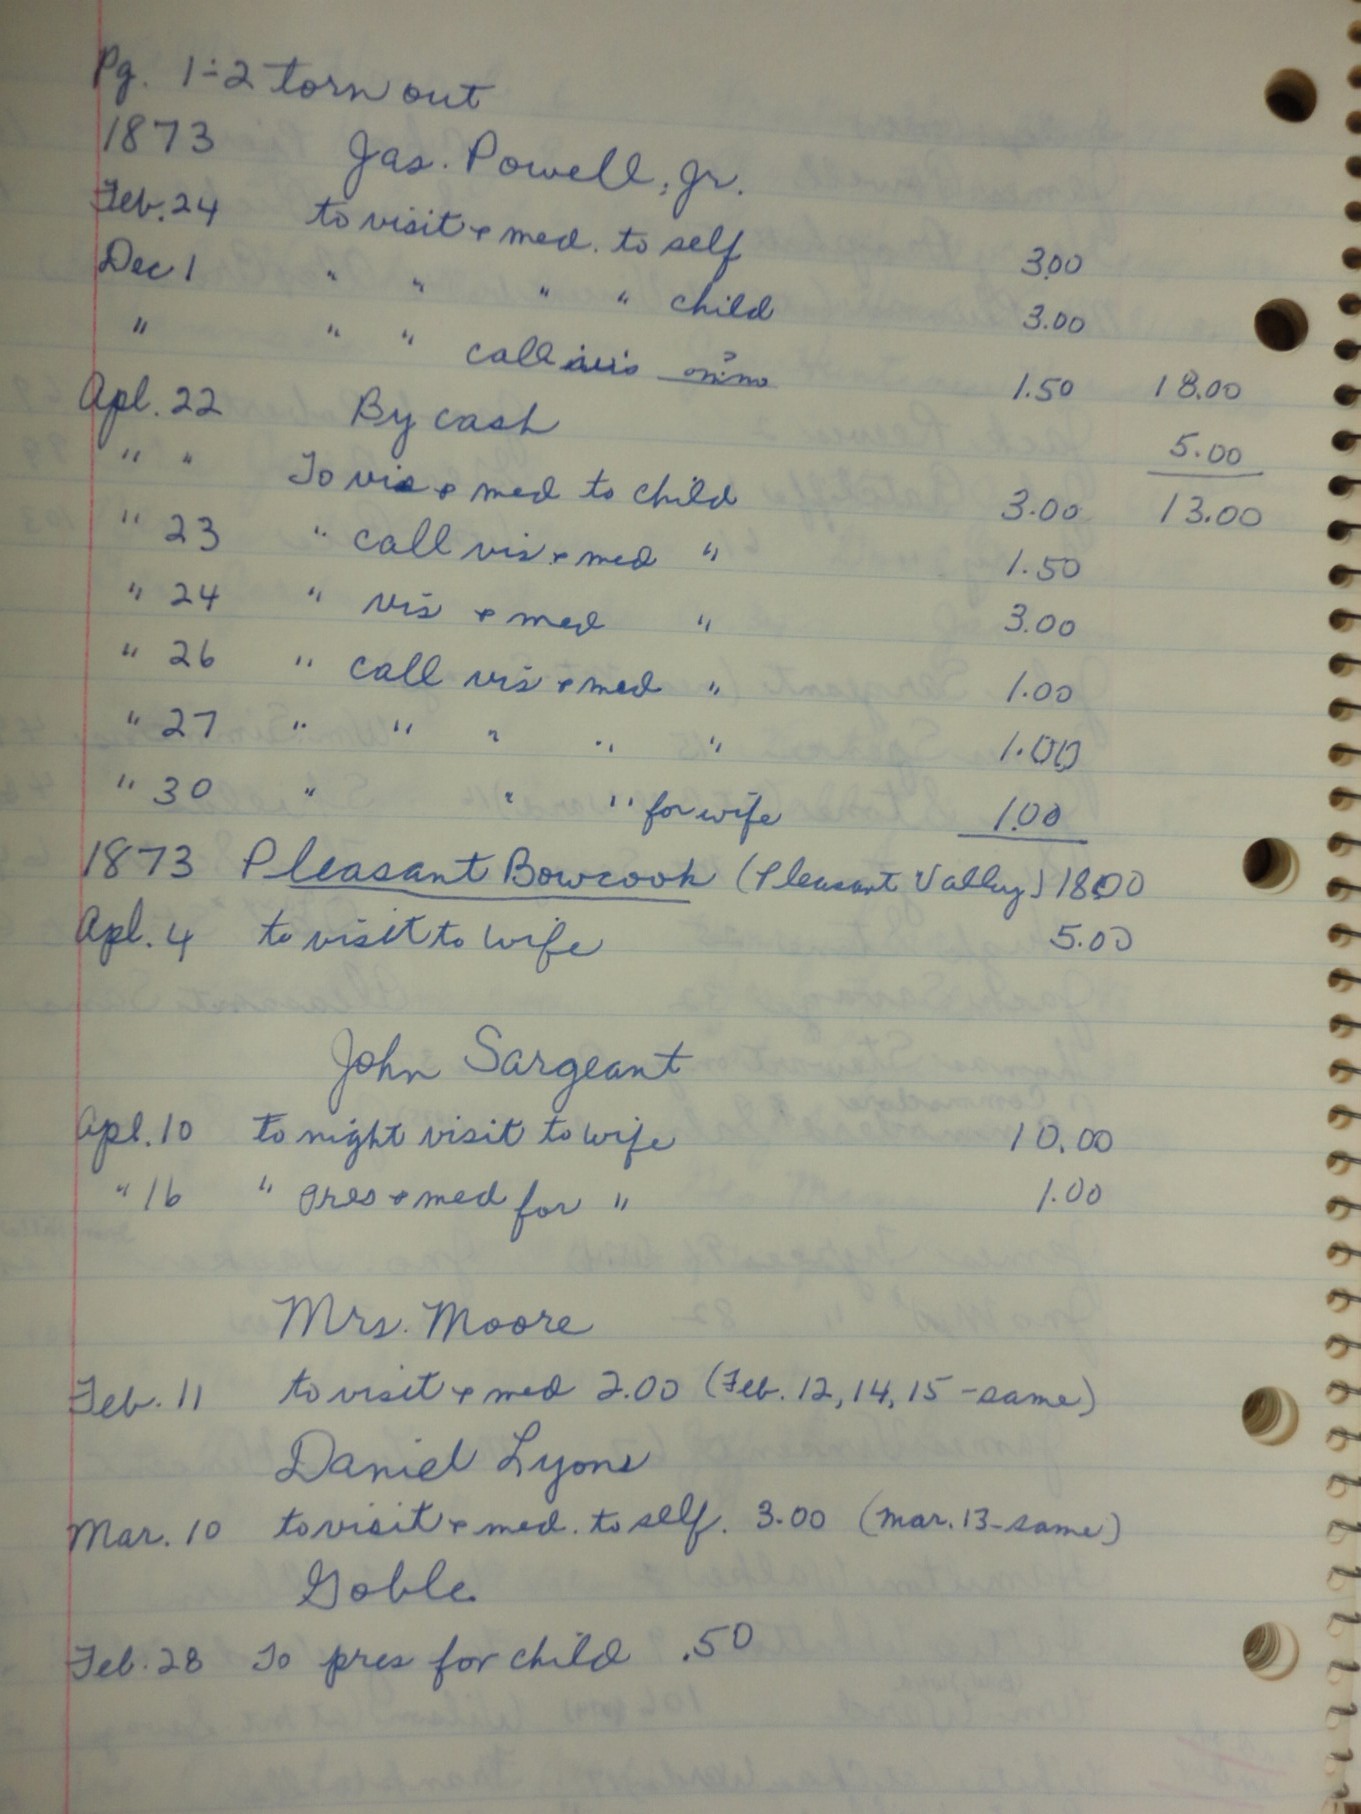 Pg. 1-2 torn out
1873 Jas. Powell, Jr.
Feb. 24 to visit & med. to self 3.00
Dec 1 " " " " child 3.00
" " " call vis 1.50 18.00
Apl. 22 By cash 5.00
" " To vis & med to child 3.00 13.00
" 23 " call vis & med " 1.50
" 24 " vis & med " 3.00
" 26 " call vis & med " 1.00
" 27 " " " " " 1.00
" 30 " " " for wife 1.00
1873 Pleasant Bowcook (Pleasant Valley) 18.00
Apl. 4 to visit to wife 5.00
John Sargeant
Apl. 10 to night visit to wife 10.00
" 16 " pres & med for " 1.00
Mrs. Moore
Feb. 11 to visit & med 2.00 (Feb. 12, 14, 15 - same)
Daniel Lyons
Mar. 10 to visit & med. to self. 3.00 (Mar. 13 - same)
Goble.
Feb. 28 To pres for child .50